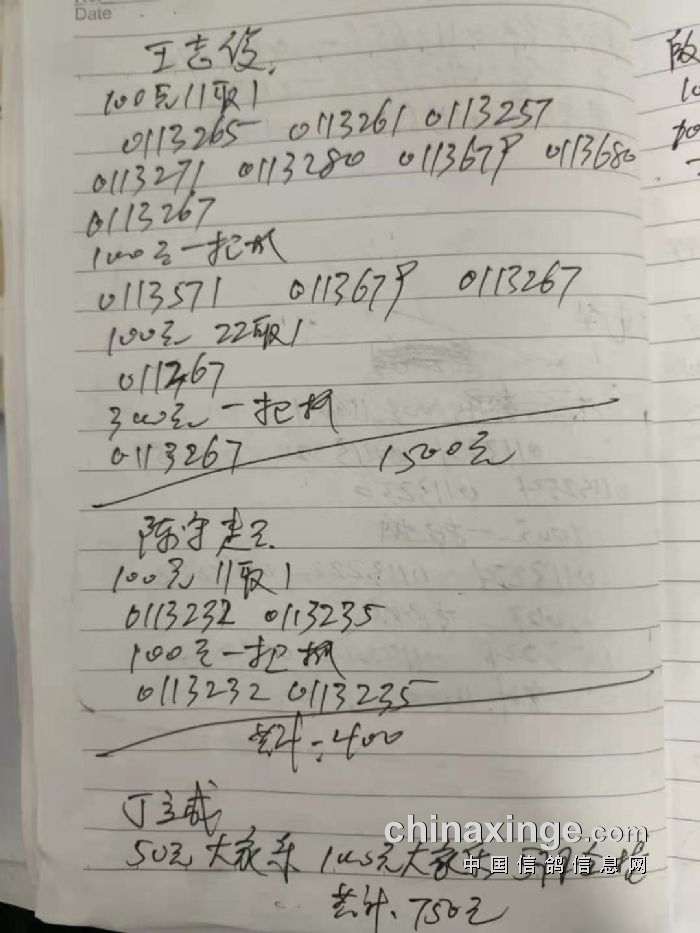 Date
王志俊
100元11取1
0113265 0113261 0113257
0113271 0113280 0113679 0113680
0113267
100元一把抓
0113571 0113679 0113267
100元 22取1
011267
300元一把抓
0113267 1500元
陈守
100元11取1
0113232 0113235
100元一把抓
0113232 0113235
共计:400
丁主成
50元大家乐 100元大家乐
共计、750元
chinaxinge.com
中国信鸽信息网